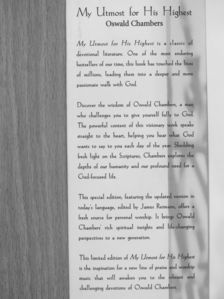 My Utmost for His Highest
Oswald Chambers
My Utmost for His Highest is a classic of
devotional literature. One of the most enduring
bestsellers of our time, this book has touched the lives
of millions, leading them into a deeper and more
passionate walk with God.
Discover the wisdom of Oswald Chambers, a man
who challenges you to give yourself fully to God.
The powerful content of this visionary work speaks
straight to the heart, helping you hear what God
wants to say to you each day of the year. Shedding
fresh light on the Scriptures, Chambers explores the
depths of our humanity and our profound need for a
God-focused life.
This special edition, featuring the updated version in
today's language, edited by James Reimann, offers a
fresh source for personal worship. It brings Oswald
Chambers' rich spiritual insights and life-changing
perspectives to a new generation.
This limited edition of My Utmost for His Highest
is the inspiration for a new line of praise and worship
music that will awaken you to the vibrant and
challenging devotions of Oswald Chambers.